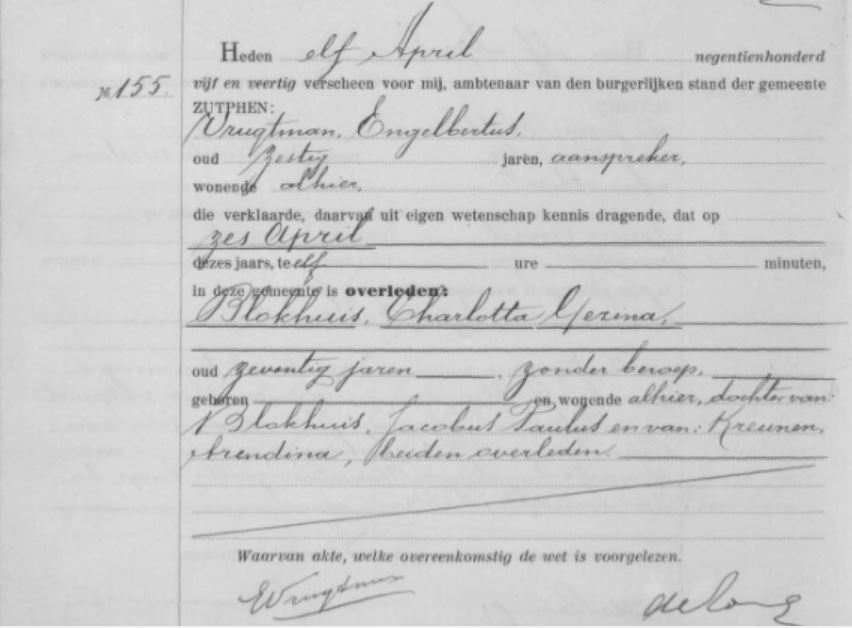 Heden elf April negentienhonderd
№ 155. vijf en veertig verscheen voor mij, ambtenaar van den burgerlijken stand der gemeente
ZUTPHEN:
Vrugtman, Engelbertus,
oud zestig jaren, aanspreker,
wonende alhier,
die verklaarde, daarvan uit eigen wetenschap kennis dragende, dat op
zes April
dezes jaars, te elf ure minuten,
in deze gemeente is overleden:
Blokhuis, Charlotta Gezina,
oud zeventig jaren, zonder beroep,
geboren en wonende alhier, dochter van:
Blokhuis, Jacobus Paulus en van: Kreunen,
Arendina, beiden overleden.
Waarvan akte, welke overeenkomstig de wet is voorgelezen.
EVrugtman